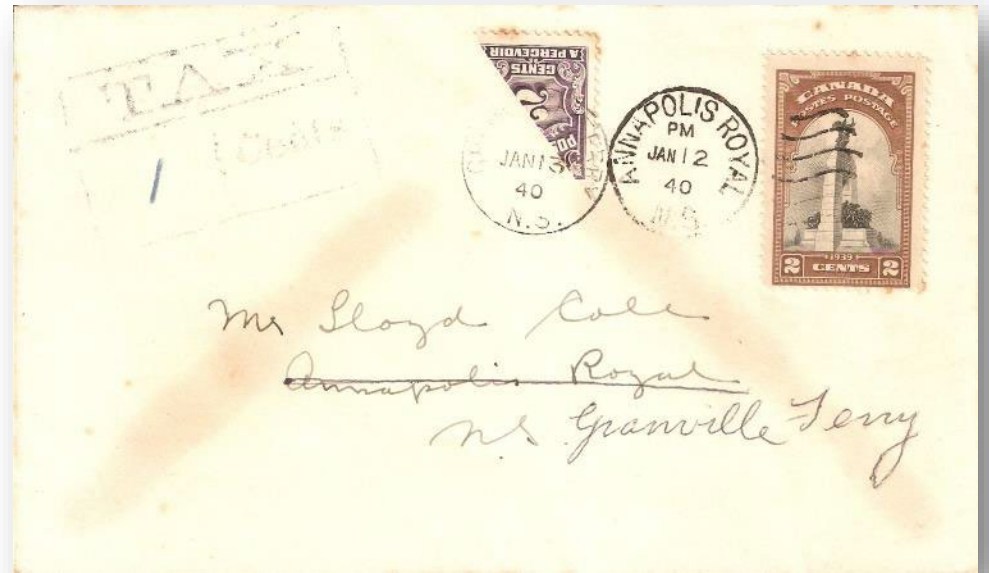 TAX
1 Cents
1
A PERCEVOIR
CENTS
2
JAN 13
40
N.S.
ANNAPOLIS ROYAL
PM
JAN 12
40
N.S.
CANADA
POSTES POSTAGE
1939
2 CENTS 2
Mr Lloyd Cole
Annapolis Royal
N.S. Granville Ferry